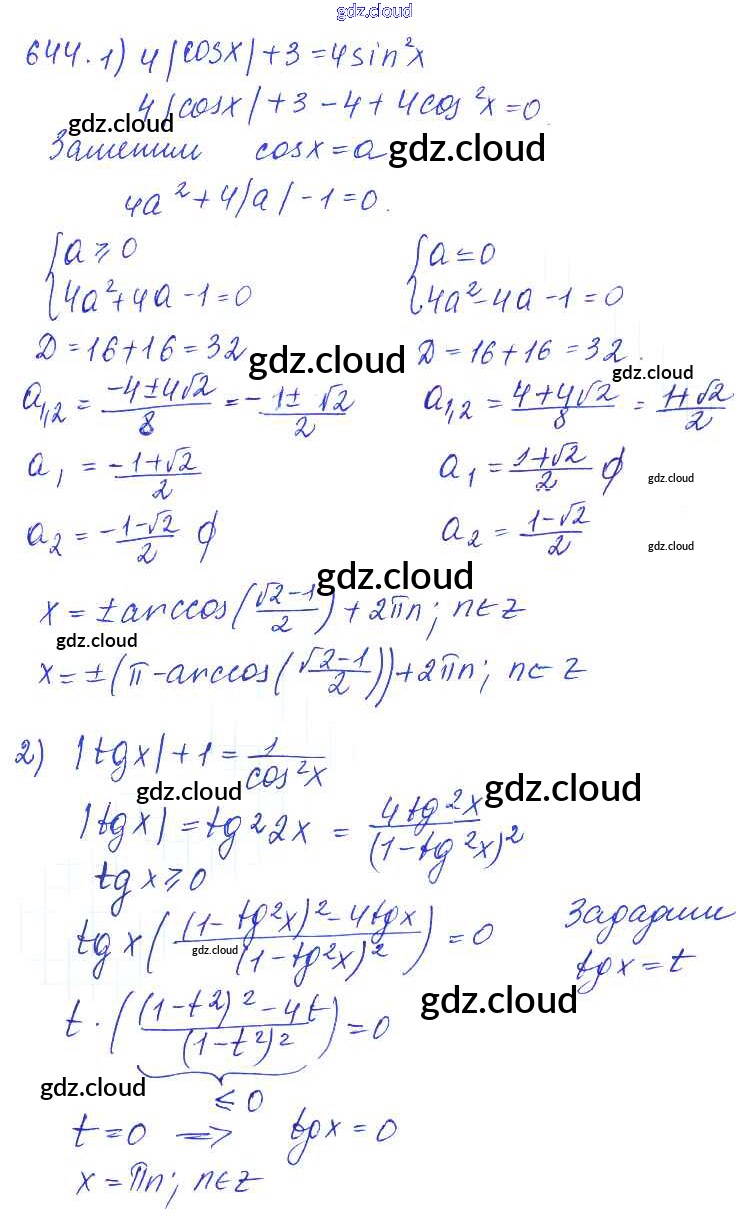 gdz.cloud
644. 1) 4|cosx|+3=4sin²x
4|cosx|+3-4+4cos²x=0.
gdz.cloud
Заменим cosx=a gdz.cloud
4a²+4|a|-1=0.
{a≥0 {a≤0
{4a²+4a-1=0 {4a²-4a-1=0
Д=16+16=32 gdz.cloud Д=16+16=32.
gdz.cloud
a₁,₂ = (-4±4√2)/8 = -(1±√2)/2 a₁,₂ = (4+4√2)/8 = (1+√2)/2
a₁ = (-1+√2)/2 a₁ = (1+√2)/2 ∅ gdz.cloud
a₂ = (-1-√2)/2 ∅ a₂ = (1-√2)/2 gdz.cloud
gdz.cloud
x = ±arccos((√2-1)/2)+2πn; n∈Z
gdz.cloud
x=±(π-arccos((√2-1)/2))+2πn; n∈Z
2) |tgx|+1=1/cos²x
gdz.cloud gdz.cloud
|tgx|=tg²2x = 4tg²x/(1-tg²x)²
tgx≥0
tgx(((1-tg²x)²-4tgx)/(1-tg²x)²)=0 Зададим
gdz.cloud
tgx=t
gdz.cloud
t·(((1-t²)²-4t)/(1-t²)²)=0
gdz.cloud
≤0
t=0 => tgx=0
x=πn; n∈Z
gdz.cloud